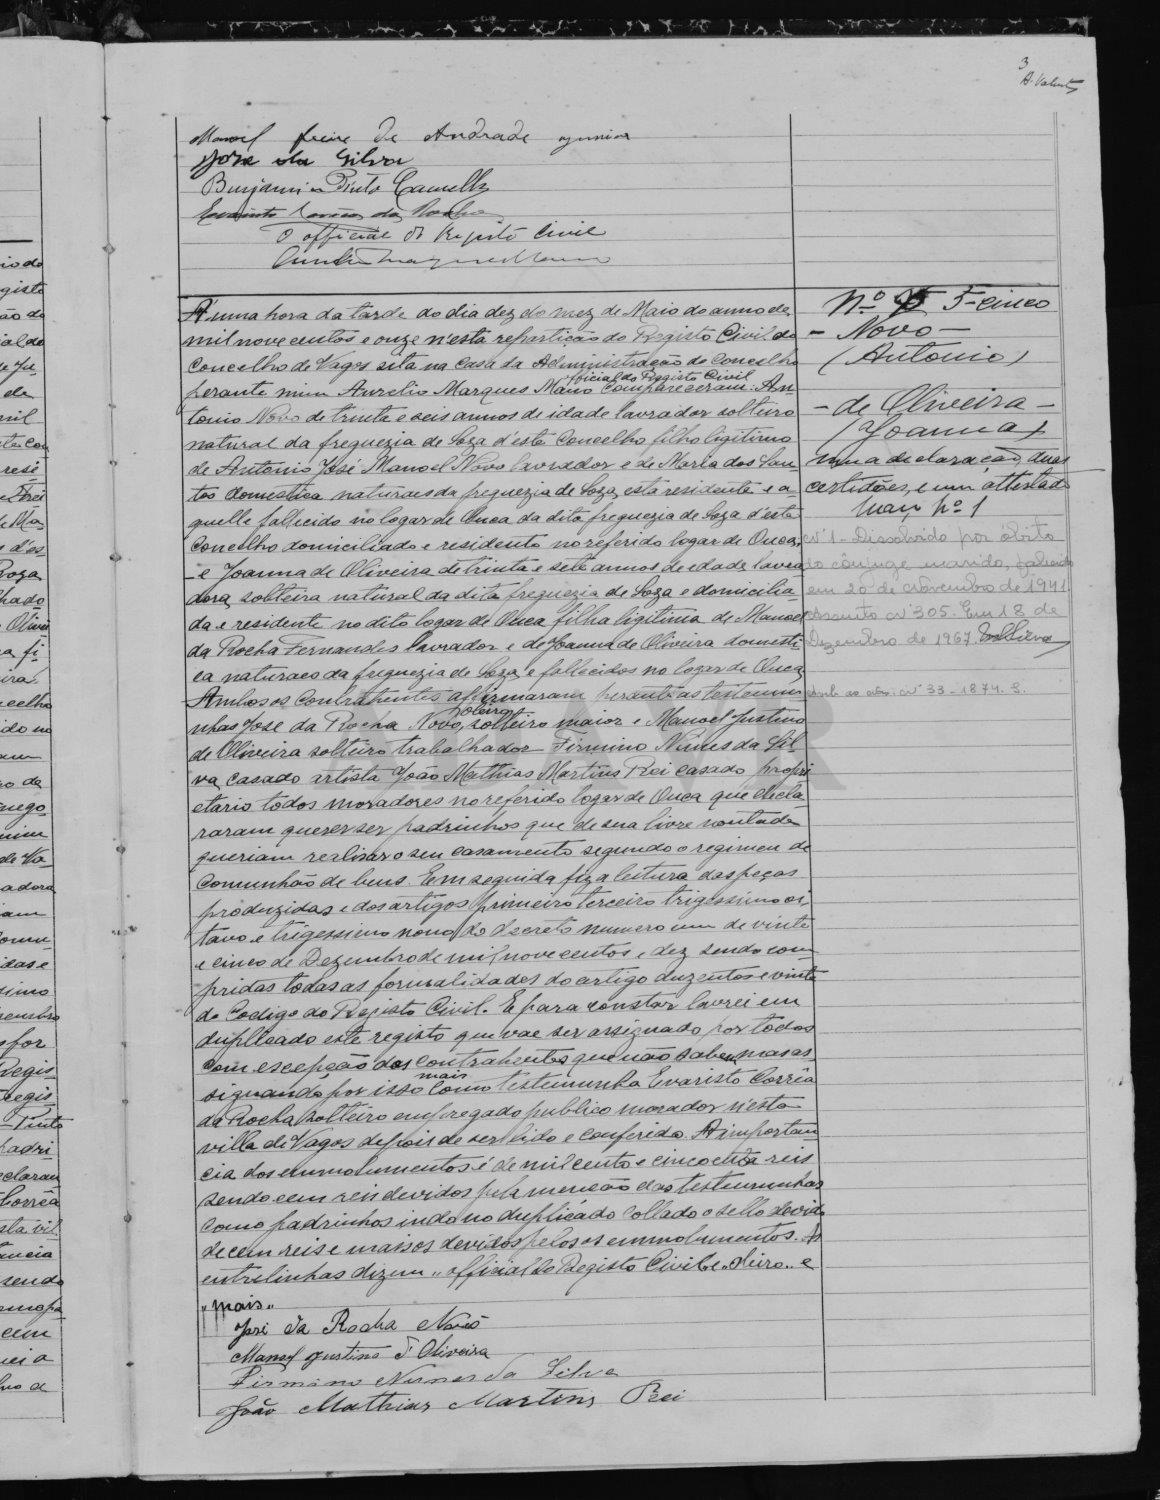 3
A. Valente
Manoel Freire de Andrade Junior
José da Silva
Benjamin Pinto Camello
Evaristo Corrêa da Rocha
O official do Registo Civil
Aurelio Marques Mano
Á uma hora da tarde do dia dez do mez de Maio do anno de
mil nove centos e onze n'esta repartição do Registo Civil do
Concelho de Vagos sita na casa da Administração do Concelho
official do Registo Civil
perante mim Aurelio Marques Mano compareceram: An-
tonio Novo de trinta e seis annos de idade lavrador solteiro
natural da freguezia de Soza d'este Concelho filho legitimo
de Antonio José Manoel Novo lavrador e de Maria dos San-
tos domestica naturaes da freguezia de Soza, esta residente e a-
quelle fallecido no logar de Ouca da dita freguezia de Soza d'este
Concelho domiciliado e residente no referido logar de Ouca,
- e Joanna de Oliveira de trinta e sete annos de edade lavra
dora, solteira natural da dita freguezia de Soza e domicilia
da e residente no dito logar de Ouca filha ligitima de Manoel
da Rocha Fernandes lavrador e de Joanna de Oliveira domesti
ca naturaes da freguezia de Soza e fallecidos no logar de Ouca
Ambos os contrahentes afirmaram perante as testemu
nhas José da Rocha Novo, solteiro maior e Manoel Justino
oleiro
de Oliveira solteiro trabalhador Firmino Nunes da Sil-
va, casado artista João Mathias Martins Rei casado propri
etario todos moradores no referido logar de Ouca que decla-
raram querer ser padrinhos que de sua livre vontade
queriam realisar o seu casamento segundo o regimen de
Comunhão de bens. Em seguida fiz a leitura das peças
produzidas e dos artigos primeiro terceiro trigessimo oi-
tavo e trigessimo nono do decreto numero um de vinte
e cinco de Dezembro de mil nove centos e dez sendo com-
pridas todas as formalidades do artigo duzentos e vinte
do Codigo do Registo Civil. E para constar lavrei em
duplicado este registo que vae ser assignado por todos
com excepção dos contrahentes que não sabem as-
signando, por isso como testemunha Evaristo Corrêa
mais
da Rocha, solteiro empregado publico morador n'esta
villa de Vagos depois de ser lido e conferido. A importan-
cia dos emmolumentos é de mil cento e cincoenta reis
sendo cem reis devidos pela menção das testemunhas
como padrinhos indo no duplicado collado o sello devido
de cem reis e mais os devidos pelos emmolumentos. As
entrelinhas dizem "official do Registo Civil" e "oleiro" e
"mais"
José da Rocha Novo
Manoel Justino d'Oliveira
Firmino Nunes da Silva
João Mathias Martins Rei
N.º 5 - cinco
- Novo -
(Antonio)
- de Oliveira -
(Joanna)
uma declaração, duas
certidões, e um attestado
Maço nº 1
Nº 1 - Dissolvido por óbito
do cônjuge marido, falecido
em 20 de Novembro de 1941.
Assento nº 305. Em 18 de
Dezembro de 1967.